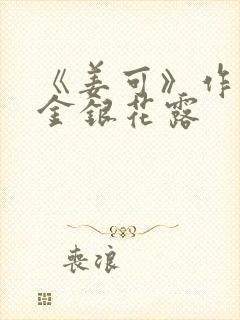 《姜可》作
金银花露
丧浪